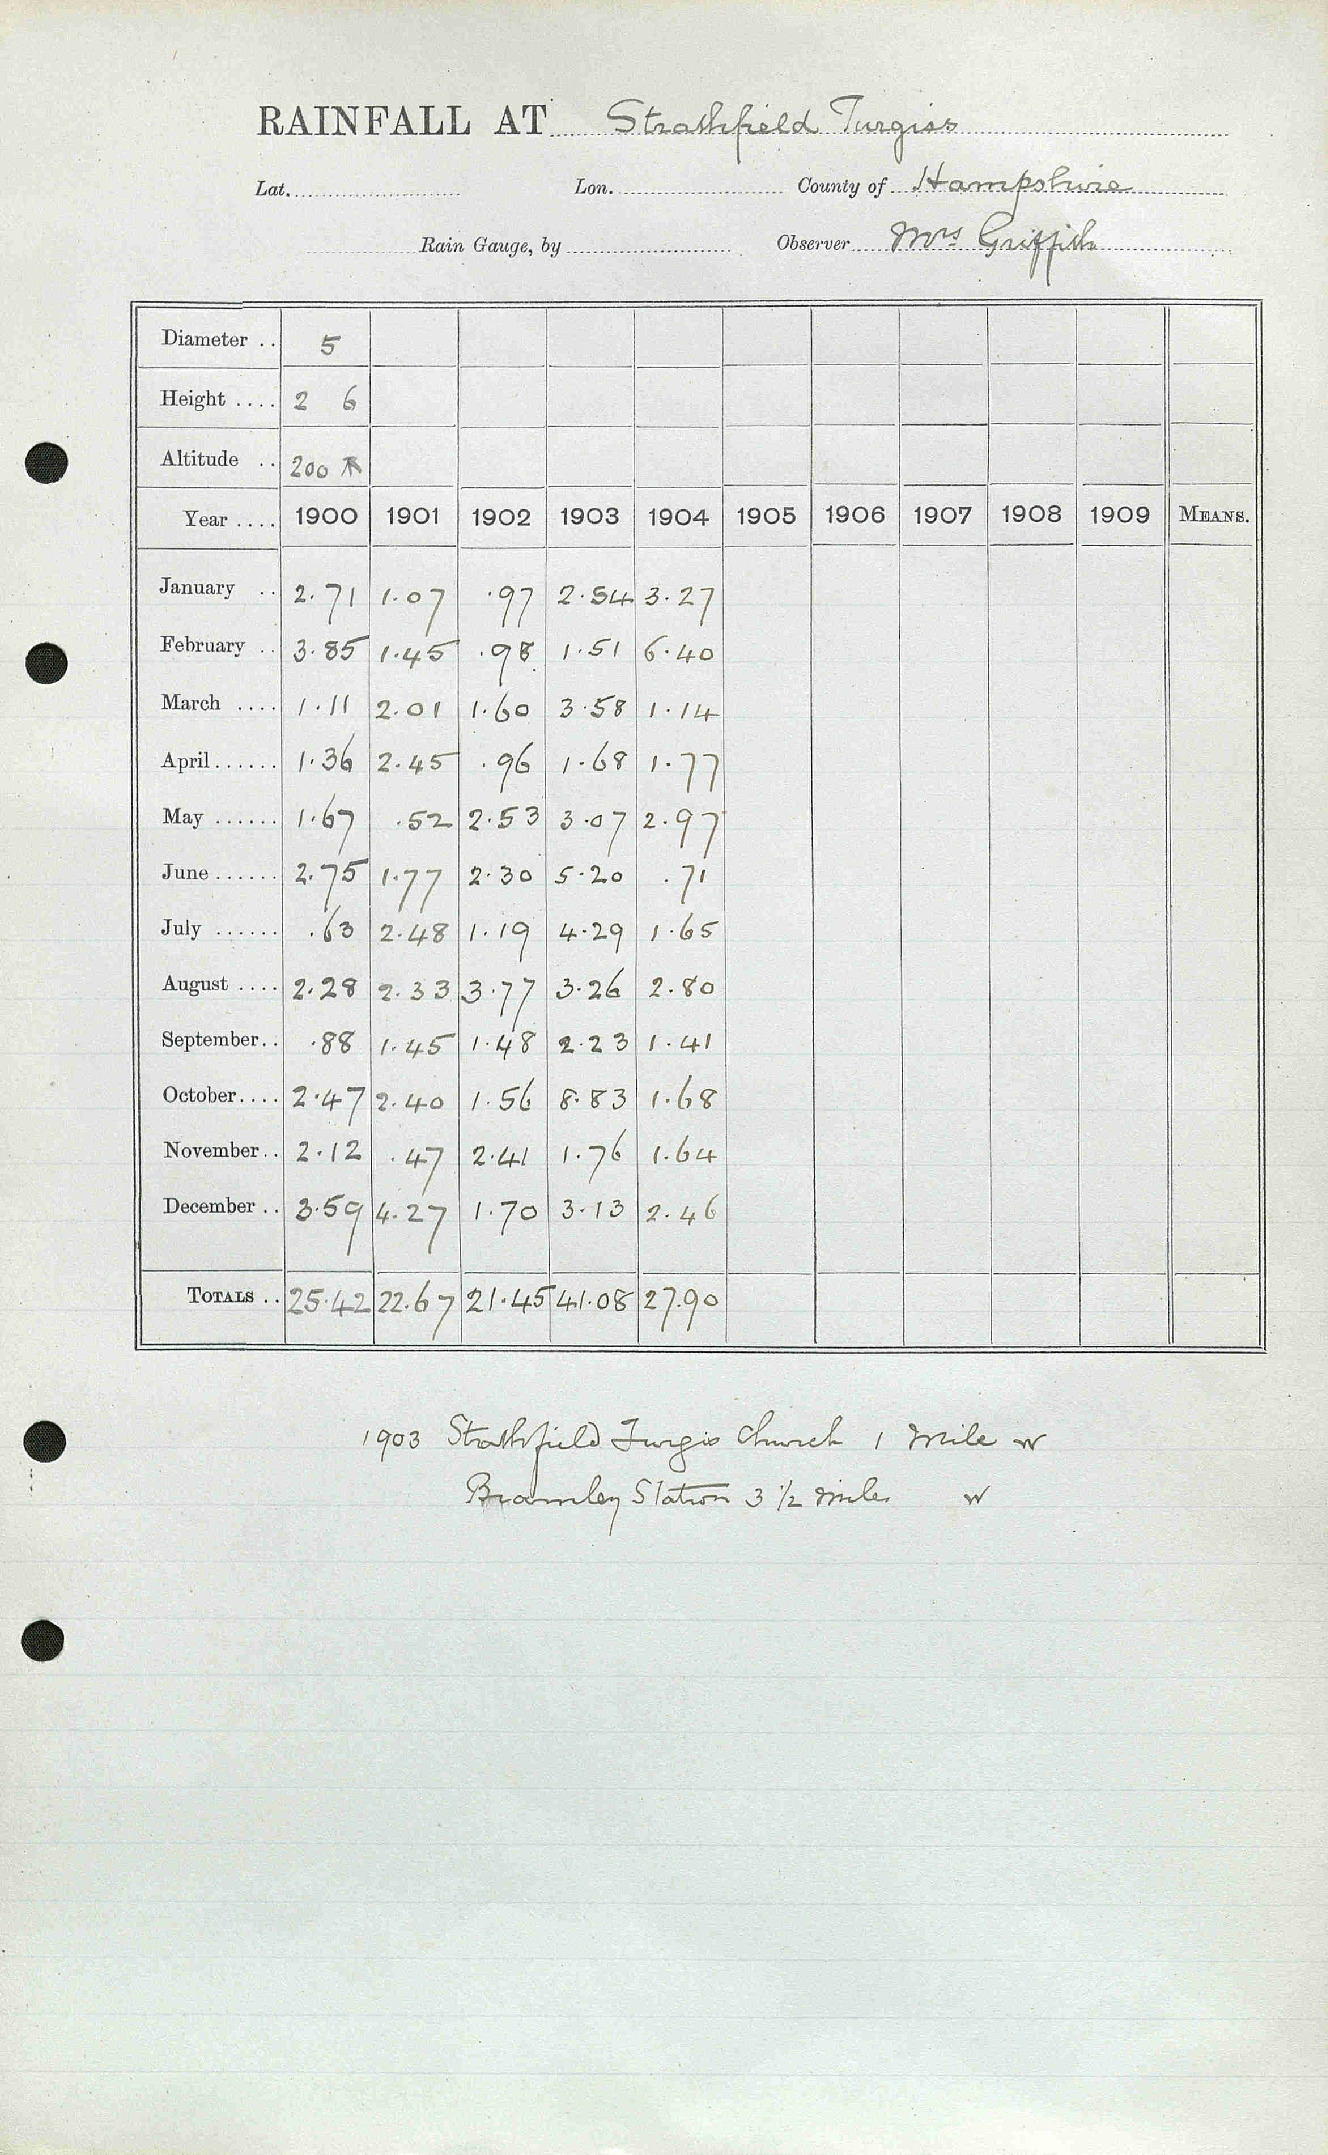 RAINFALL AT Strathfield Turgiss
Lat. Lon. County of Hampshire
Rain Gauge, by Observer Mrs Griffith
Diameter .. 5
Height .... 2 6
Altitude .. 200
Year .... 1900 1901 1902 1903 1904 1905 1906 1907 1908 1909 MEANS.
January .. 2.71 1.07 .97 2.54 3.27
February .. 3.85 1.45 .98 1.51 6.40
March .... 1.11 2.01 1.60 3.58 1.14
April...... 1.36 2.45 .96 1.68 1.77
May ...... 1.67 .52 2.53 3.07 2.97
June...... 2.75 1.77 2.30 5.20 .71
July ...... .63 2.48 1.19 4.29 1.65
August .... 2.28 2.33 3.77 3.26 2.80
September.. .88 1.45 1.48 2.23 1.41
October.... 2.47 2.40 1.56 8.83 1.68
November.. 2.12 .47 2.41 1.76 1.64
December .. 3.59 4.27 1.70 3.13 2.46
TOTALS .. 25.42 22.67 21.45 41.08 27.90
1903 Strathfield Turgis Church 1 mile W
Bramley Station 3 1/2 miles W